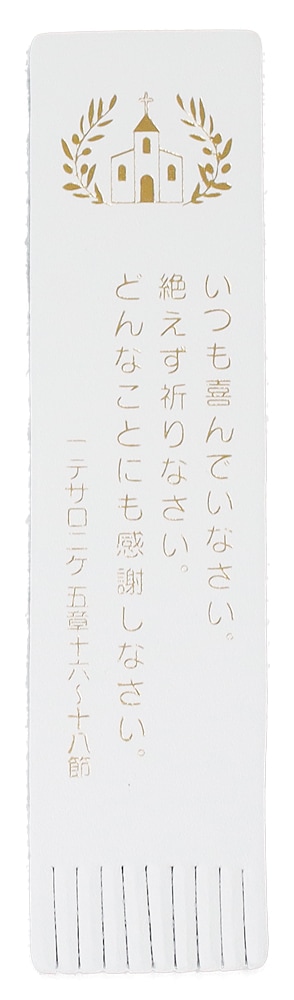 いつも喜んでいなさい。
絶えず祈りなさい。
どんなことにも感謝しなさい。
一テサロニケ 五章十六~十八節